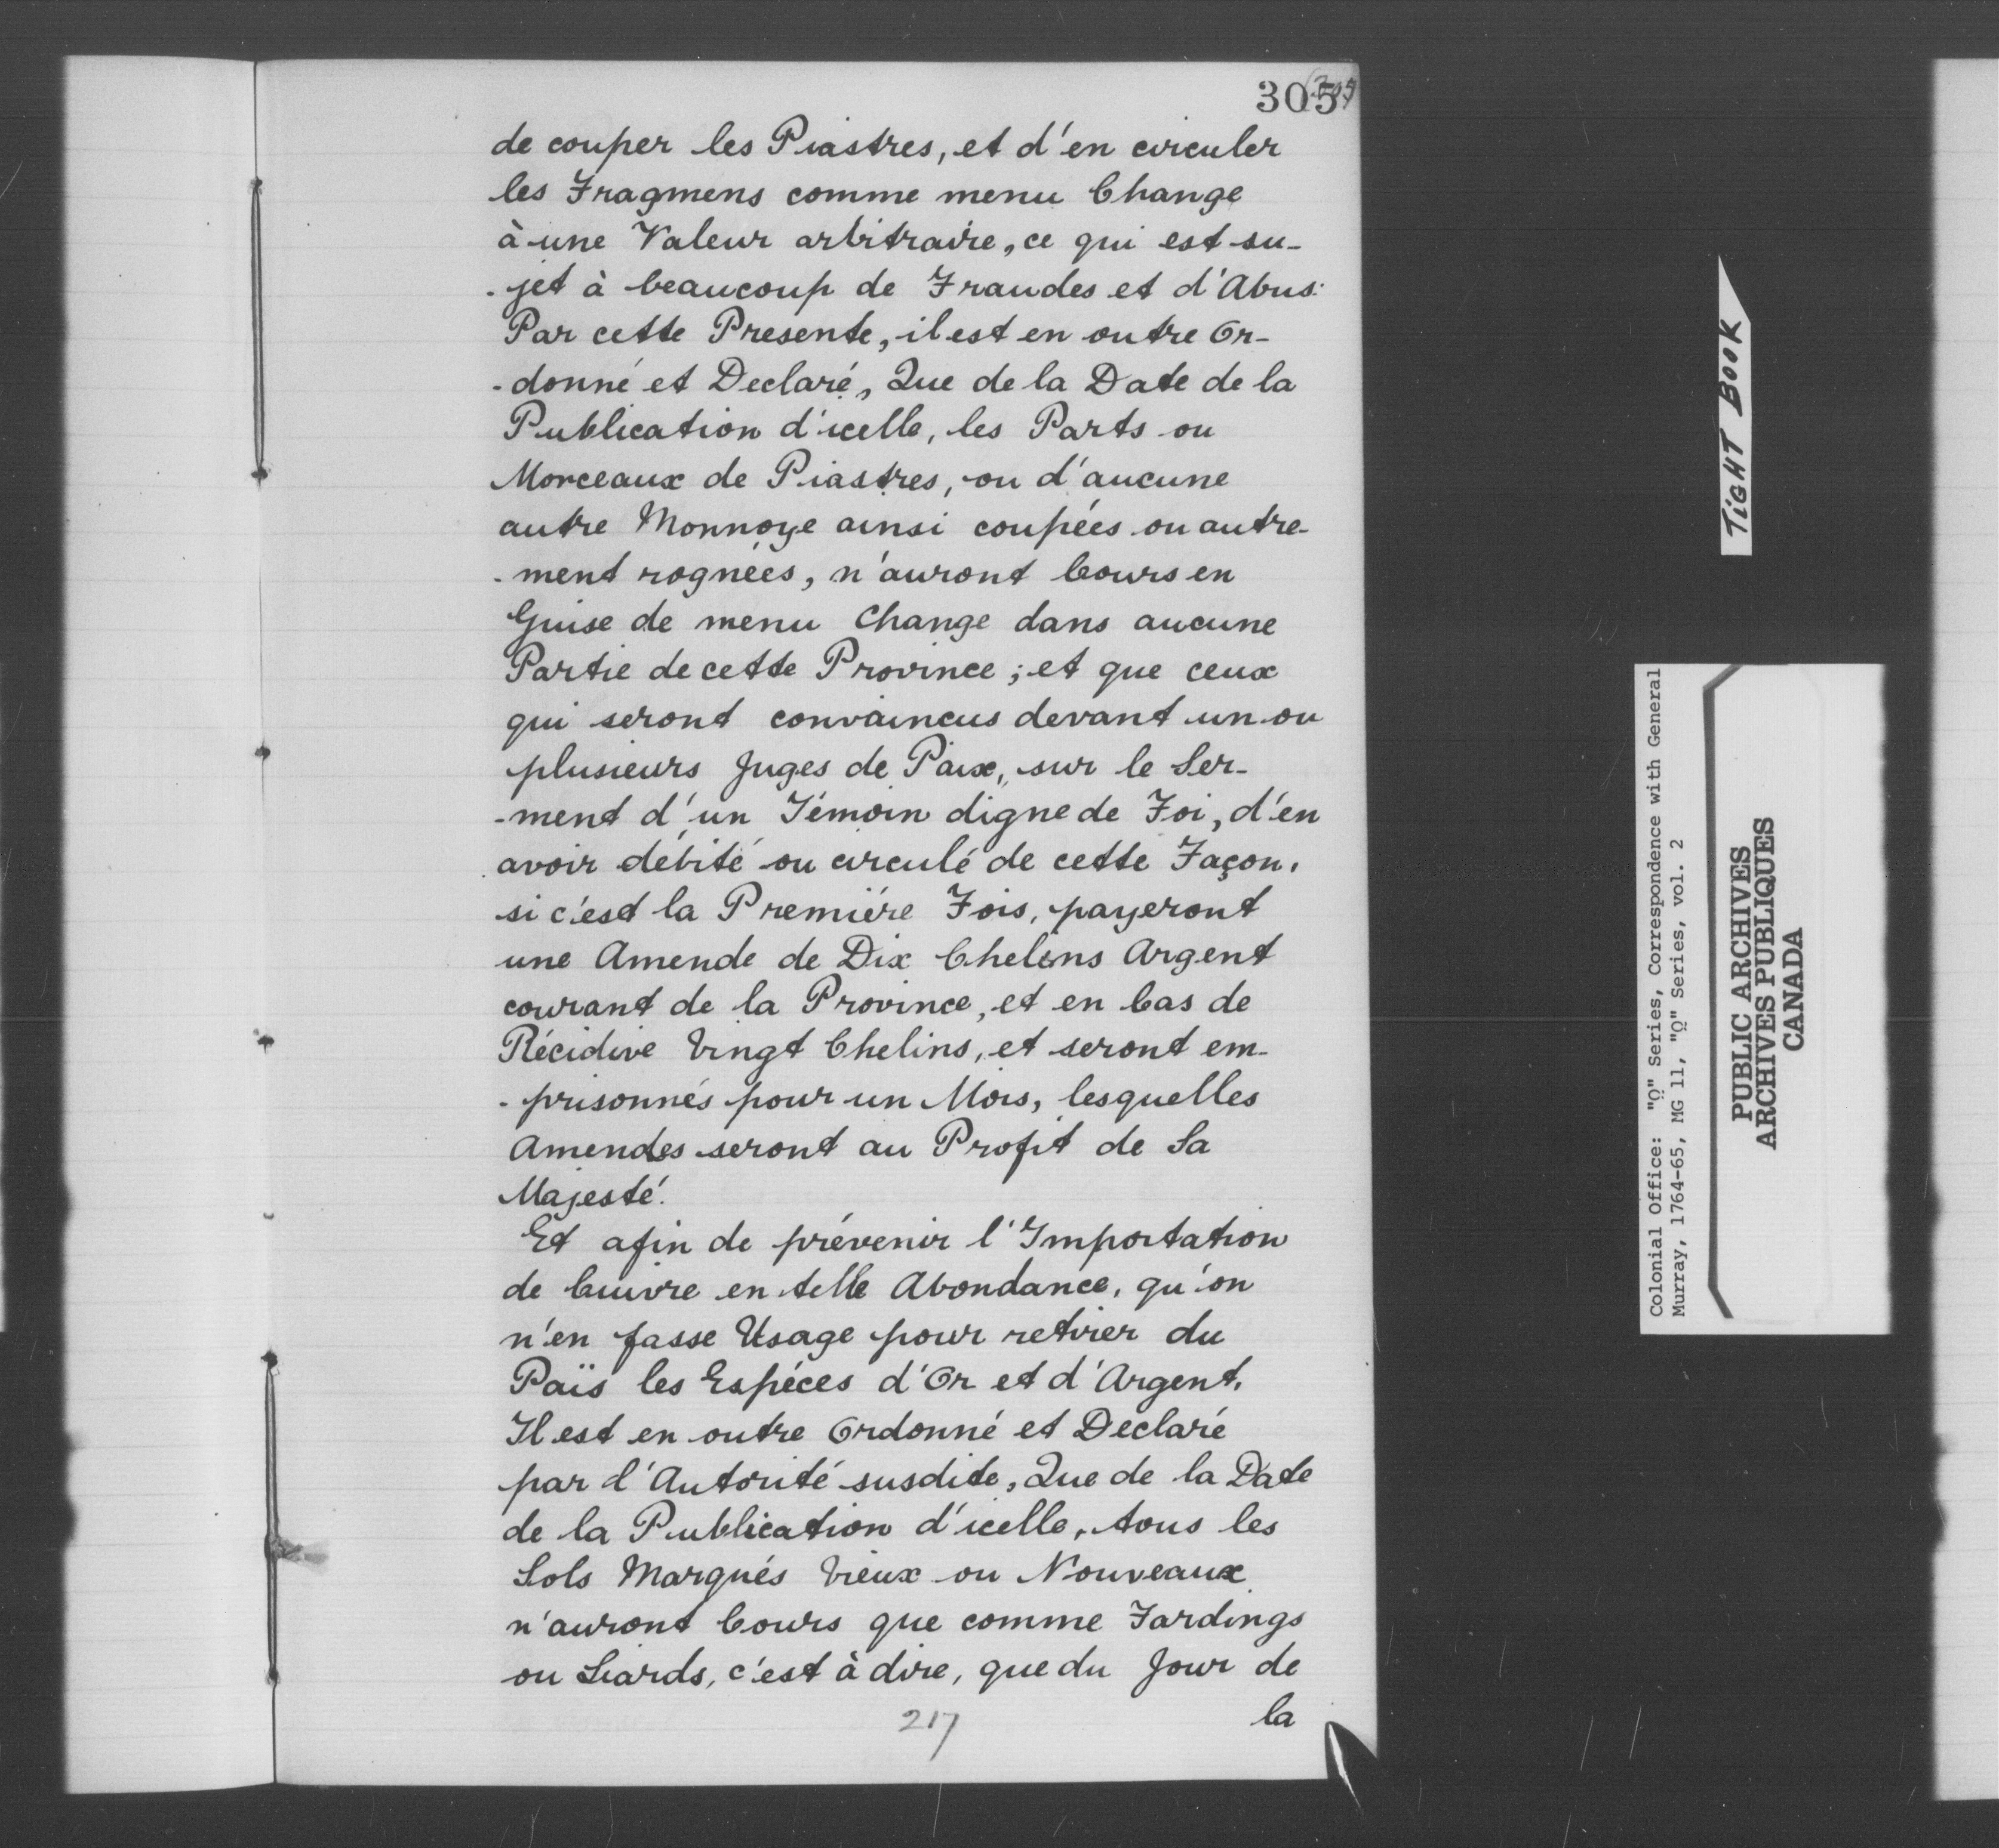 305
de couper les Piastres, et d'en circuler
les Fragmens comme menu Change
à une Valeur arbitraire, ce qui est su-
-jet à beaucoup de Fraudes et d'Abus:
Par cette Presente, il est en outre Or-
-donné et Declaré, Que de la Date de la
Publication d'icelle, les Parts ou
Morceaux de Piastres, ou d'aucune
autre Monnoye ainsi coupées ou autre-
-ment rognées, n'auront Cours en
Guise de menu Change dans aucune
Partie de cette Province; et que ceux
qui seront convaincus devant un ou
plusieurs Juges de Paix, sur le Ser-
-ment d'un Témoin digne de Foi, d'en
avoir débité ou circulé de cette Façon,
si c'est la Premiére Fois, payeront
une Amende de Dix Chelins Argent
courant de la Province, et en Cas de
Récidive Vingt Chelins, et seront em-
-prisonnés pour un Mois, lesquelles
Amendes seront au Profit de Sa
Majesté.
Et afin de prévenir l'Importation
de Cuivre en telle Abondance, qu'on
n'en fasse Usage pour retirer du
Païs les Espéces d'Or et d'Argent,
Il est en outre Ordonné et Declaré
par l'Autorité susdite, Que de la Date
de la Publication d'icelle, tous les
Sols Marqués Vieux ou Nouveaux
n'auront Cours que comme Fardings
ou Liards, c'est à dire, que du Jour de
la
217
TIGHT BOOK
Colonial Office: "Q" Series, Correspondence with General
Murray, 1764-65, MG 11, "Q" Series, vol. 2
PUBLIC ARCHIVES
ARCHIVES PUBLIQUES
CANADA